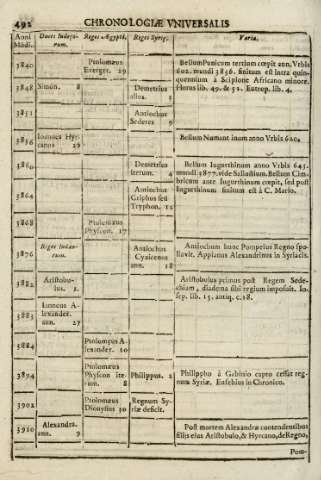 492 CHRONOLOGIÆ VNIVERSALIS
Anni Mūdi. Duces Iudæorum. Reges Ægypti. Reges Syriæ. Varia.
3840 Ptolomæus
Euerget. 29
Bellum Punicum tertium cœpit ann. Vrbis
602. mundi 3836. finitum est intra quin-
quennium à Scipione Africano minore.
Florus lib. 49. & 52. Eutrop. lib. 4.
3848 Simon. 8 Demetrius
alius. 3
3851 Antiochus
Sedetes 9
3856 Ioannes Hyr-
canus 29
Bellum Numant inum anno Vrbis 620.
3860 Demetrius
iterum. 4
Bellum Iugurthinum anno Vrbis 645.
mundi 3877. vide Sallustium. Bellum Cim-
bricum ante Iugurthinum cœpit, sed post
Iugurthinum finitum est à C. Mario.
3864 Antiochus
Griphus seu
Tryphon. 12
3868 Ptolomæus
Physcon. 17
3876 Reges Iudæo-
rum.
Antiochus
Cyzicenus
ann. 18
Antiochum hunc Pompeius Regno spo-
liavit. Appianus Alexandrinus in Syriacis.
3882 Aristobu-
lus. 1.
Aristobulus primus post Regem Sede-
chiam, diadema sibi regium imposuit. Io-
sep. lib. 13. antiq. c. 18.
3883 Ianneus A-
lexander.
ann. 27
3884 Ptolomæus A-
lexander. 10
3894 Ptolomæus
Physcon ite-
rum. 8
Philippus. 2
Philippho à Gabinio capto cessat reg-
num Syriæ. Eusebius in Chronico.
3902 Ptolomæus
Dionysius 30
Regnum Sy-
riæ deficit.
3910 Alexandra.
ann. 9
Post mortem Alexandræ contendentibus
filijs eius Aristobulo, & Hyrcano, de Regno,
Pom-